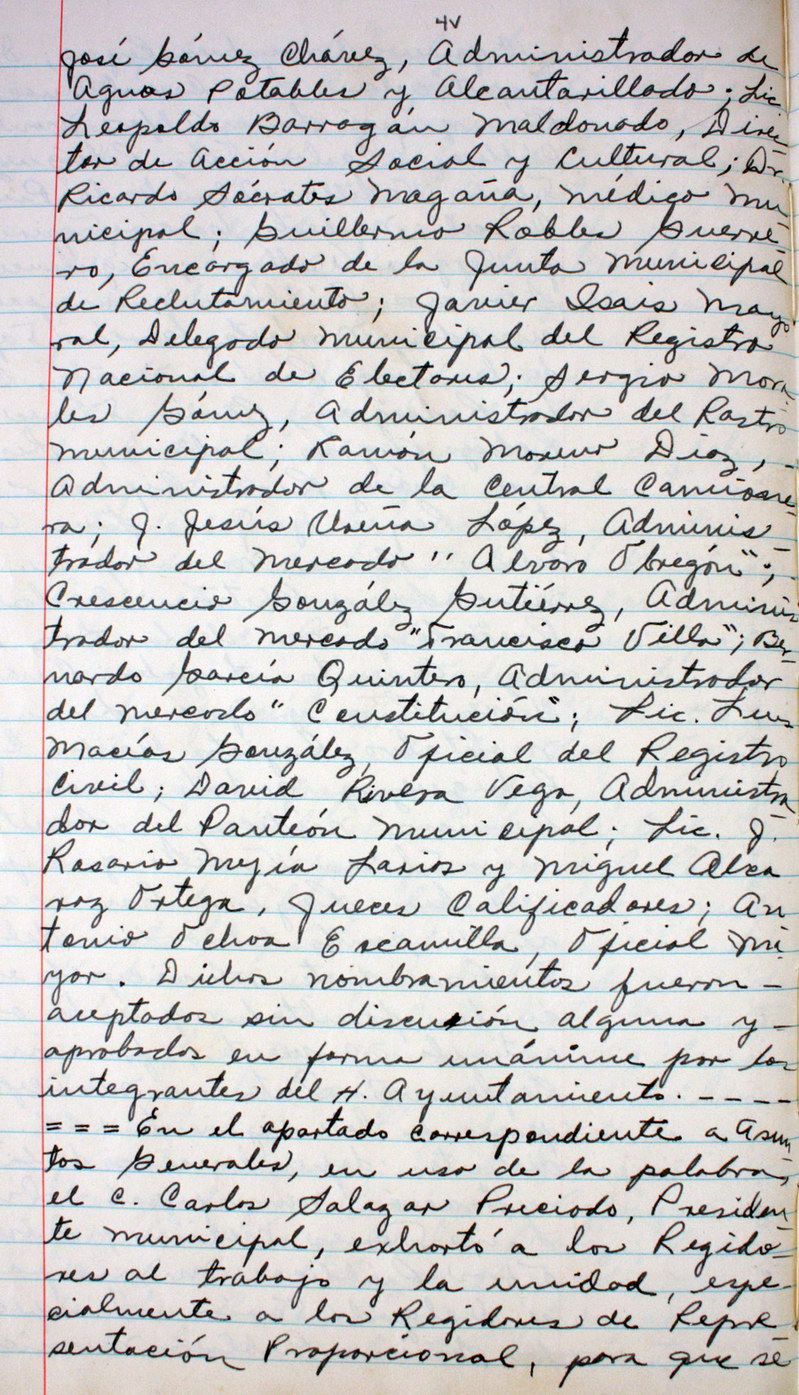 4V
José Gómez Chávez, Administrador de
Aguas Potables y Alcantarillado; Lic
Leopoldo Barragán Maldonado, Direc
tor de Acción Social y Cultural; Dr.
Ricardo Sócrates Magaña, Médico Mu
nicipal; Guillermo Robles Guerre
ro, Encargado de la Junta Municipal
de Reclutamiento; Javier Isais Mayo
ral, Delegado Municipal del Registro
Nacional de Electores; Sergio Mora
les Gámez, Administrador del Rastro
Municipal; Ramón Moreno Díaz, -
Administrador de la Central Camione
ra; J. Jesús Ureña López, Adminis
trador del Mercado "Alvaro Obregón";
Crescencio González Gutiérrez, Adminis
trador del Mercado "Francisco Villa"; Ber-
nardo García Quintero, Administrador
del Mercado "Constitución"; Lic. Luis
Macías González, Oficial del Registro
Civil; David Rivera Vega, Administra
dor del Panteón Municipal; Lic. J.
Rosario Mejía Larios y Miguel Alca
raz Ortega, Jueces Calificadores; An
tonio Ochoa Escamilla, Oficial Ma
yor. Dichos nombramientos fueron -
aceptados sin discusión alguna y -
aprobados en forma unánime por los
integrantes del H. Ayuntamiento. - - - -
= = = En el apartado correspondiente a Asun
tos Generales, en uso de la palabra,
el C. Carlos Salazar Preciado, Presiden
te Municipal, exhortó a los Regido-
res al trabajo y la unidad, espe-
cialmente a los Regidores de Repre
sentación Proporcional, para que se